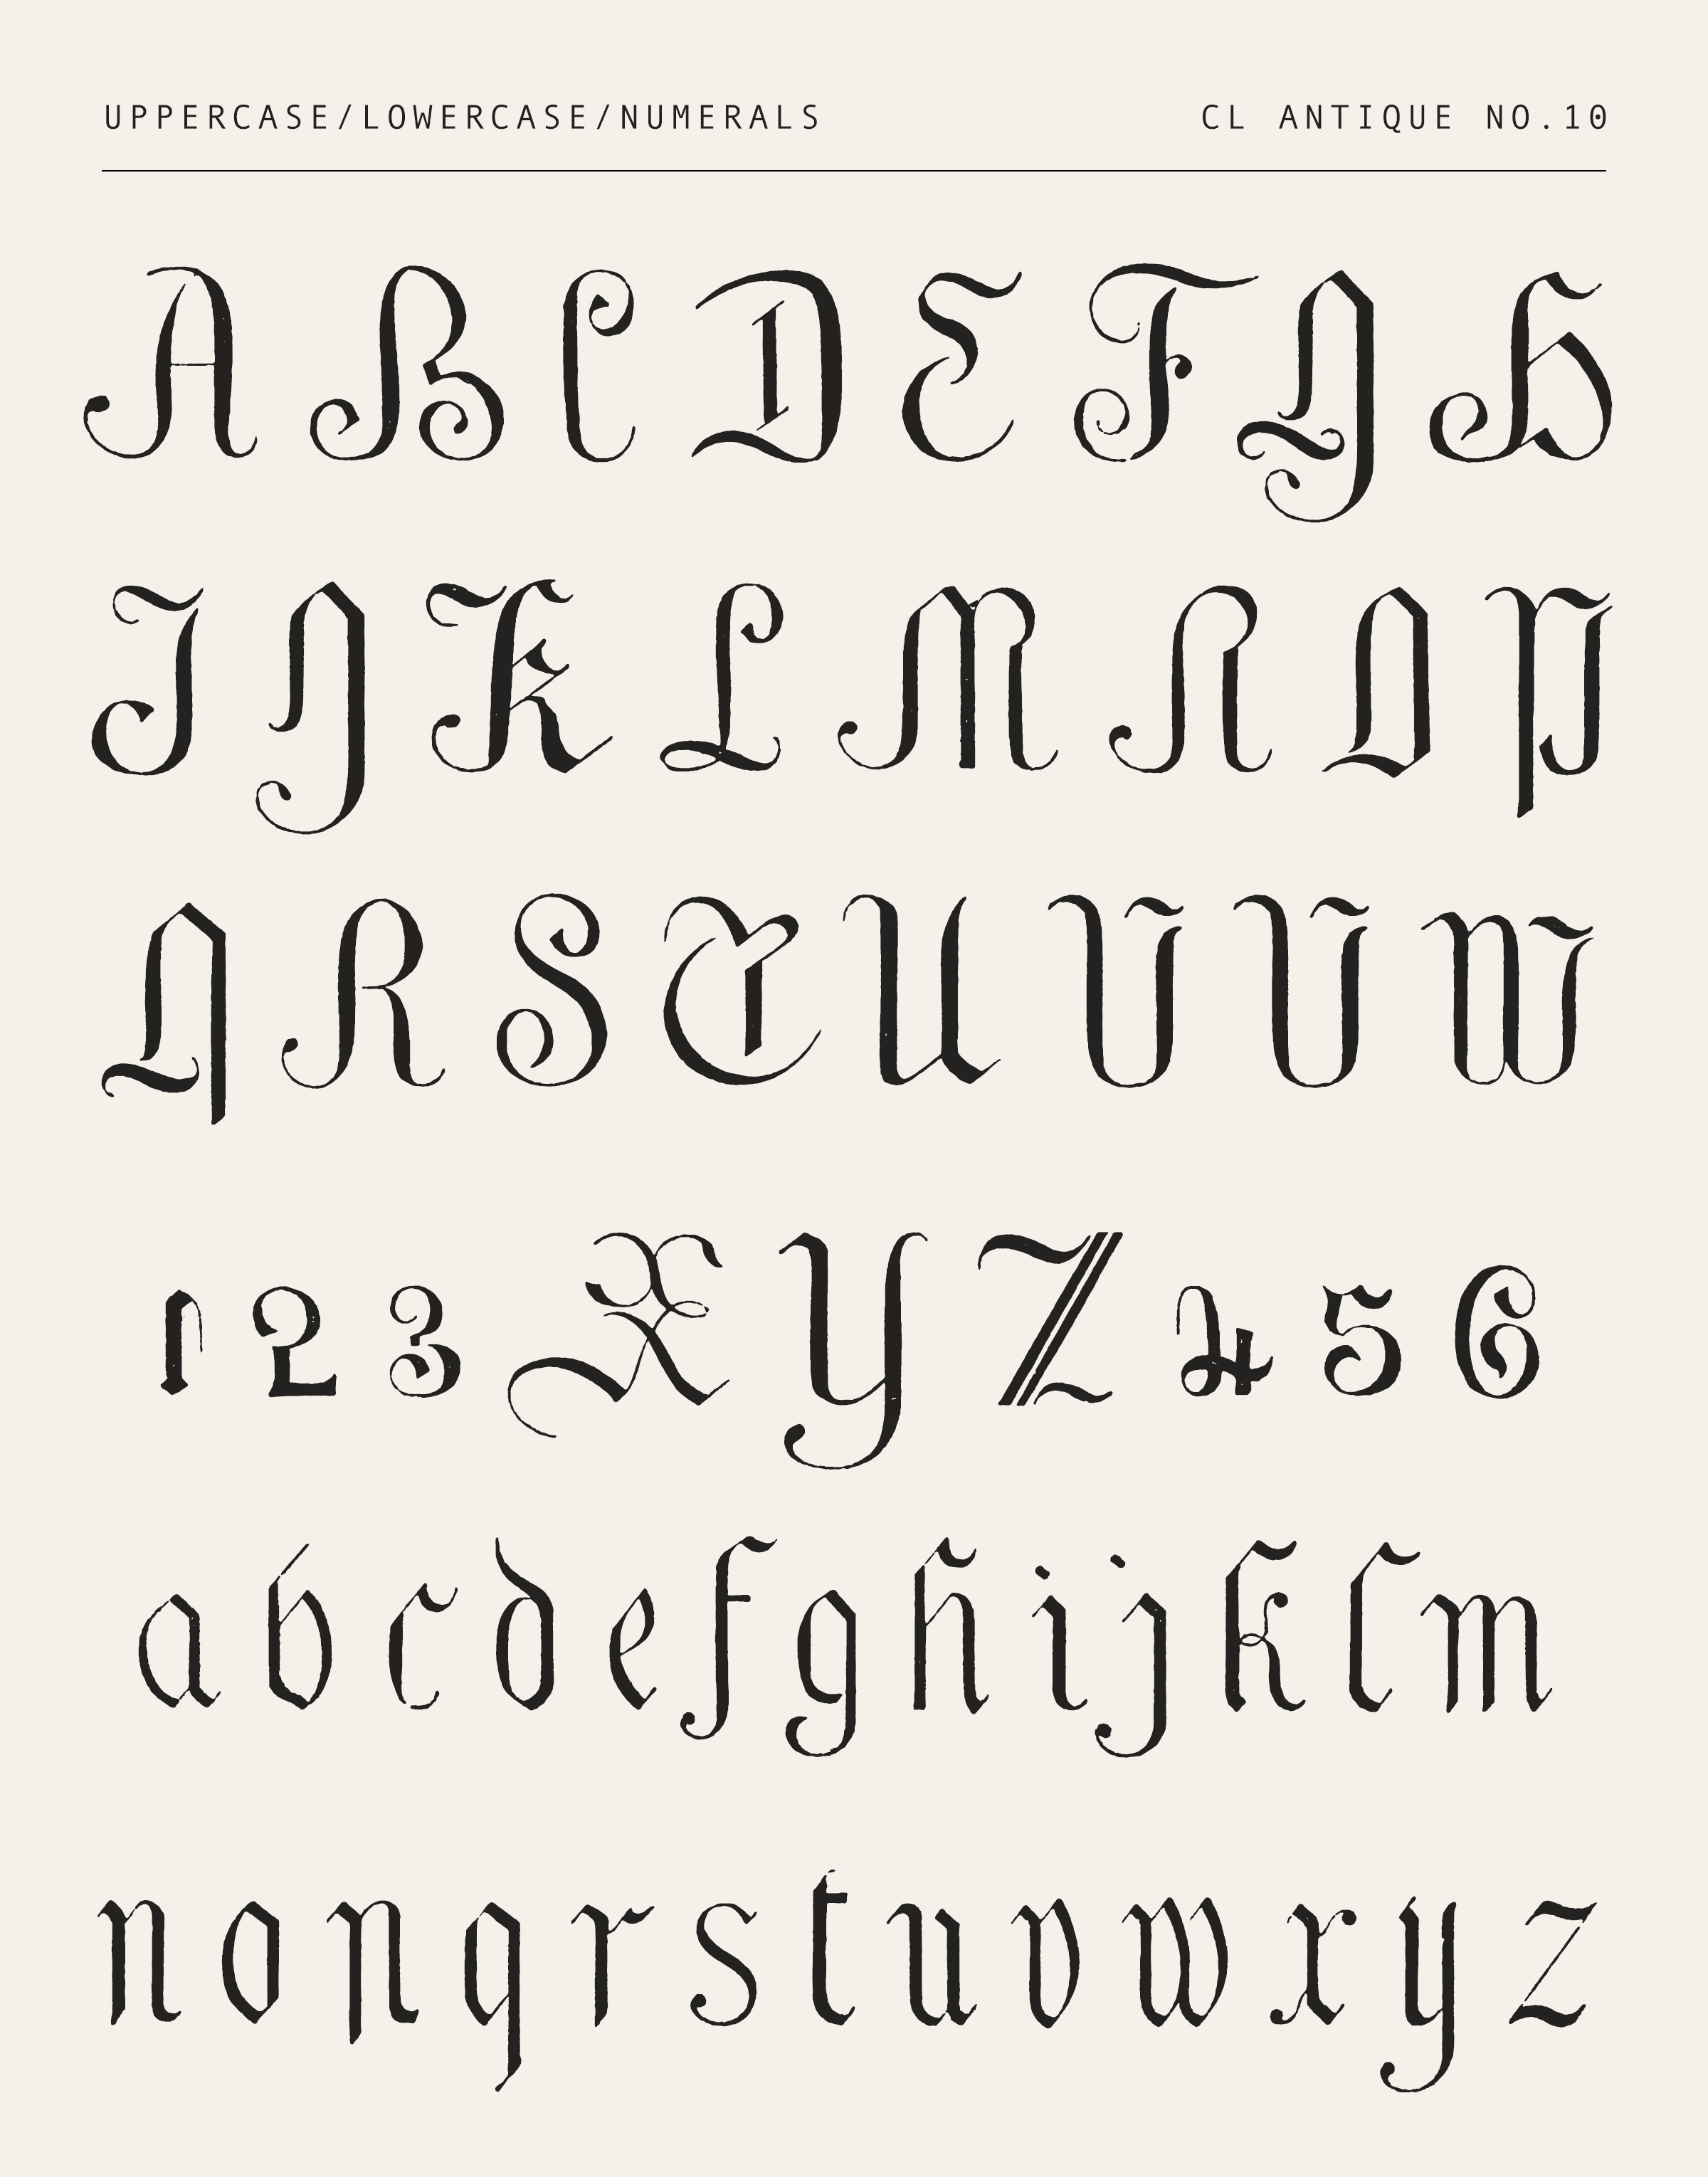 UPPERCASE/LOWERCASE/NUMERALS CL ANTIQUE NO.10
A B C D E F G H
I J K L M N O P
Q R S T U V V W
1 2 3 X Y Z 4 5 6
a b c d e f g h i j k l m
n o p q r s t u v w x y z